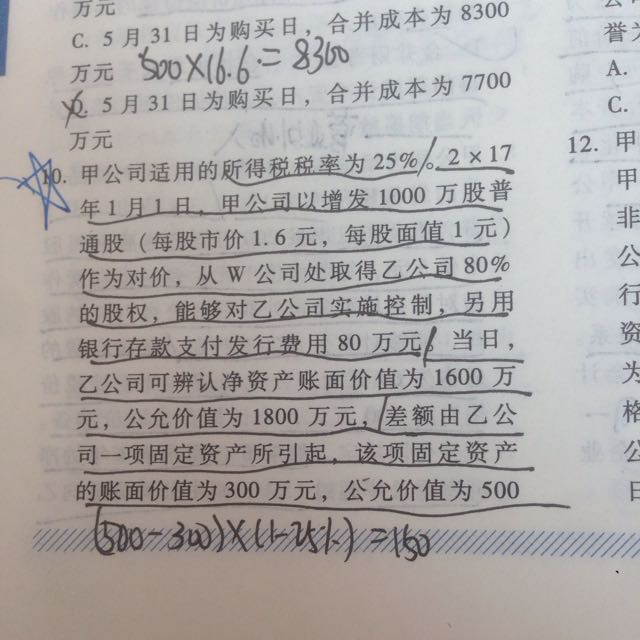 万元
C. 5月31日为购买日，合并成本为8300
万元 500×16.6=8300
D. 5月31日为购买日，合并成本为7700
万元
10. 甲公司适用的所得税税率为25%。2×17
年1月1日，甲公司以增发1000万股普
通股（每股市价1.6元，每股面值1元）
作为对价，从W公司处取得乙公司80%
的股权，能够对乙公司实施控制，另用
银行存款支付发行费用80万元。当日，
乙公司可辨认净资产账面价值为1600万
元，公允价值为1800万元，差额由乙公
司一项固定资产所引起，该项固定资产
的账面价值为300万元，公允价值为500
(500-300)×(1-25%)=150
誉为
A.
C.
12. 甲
甲
非
公
行
资
为
格
公
日